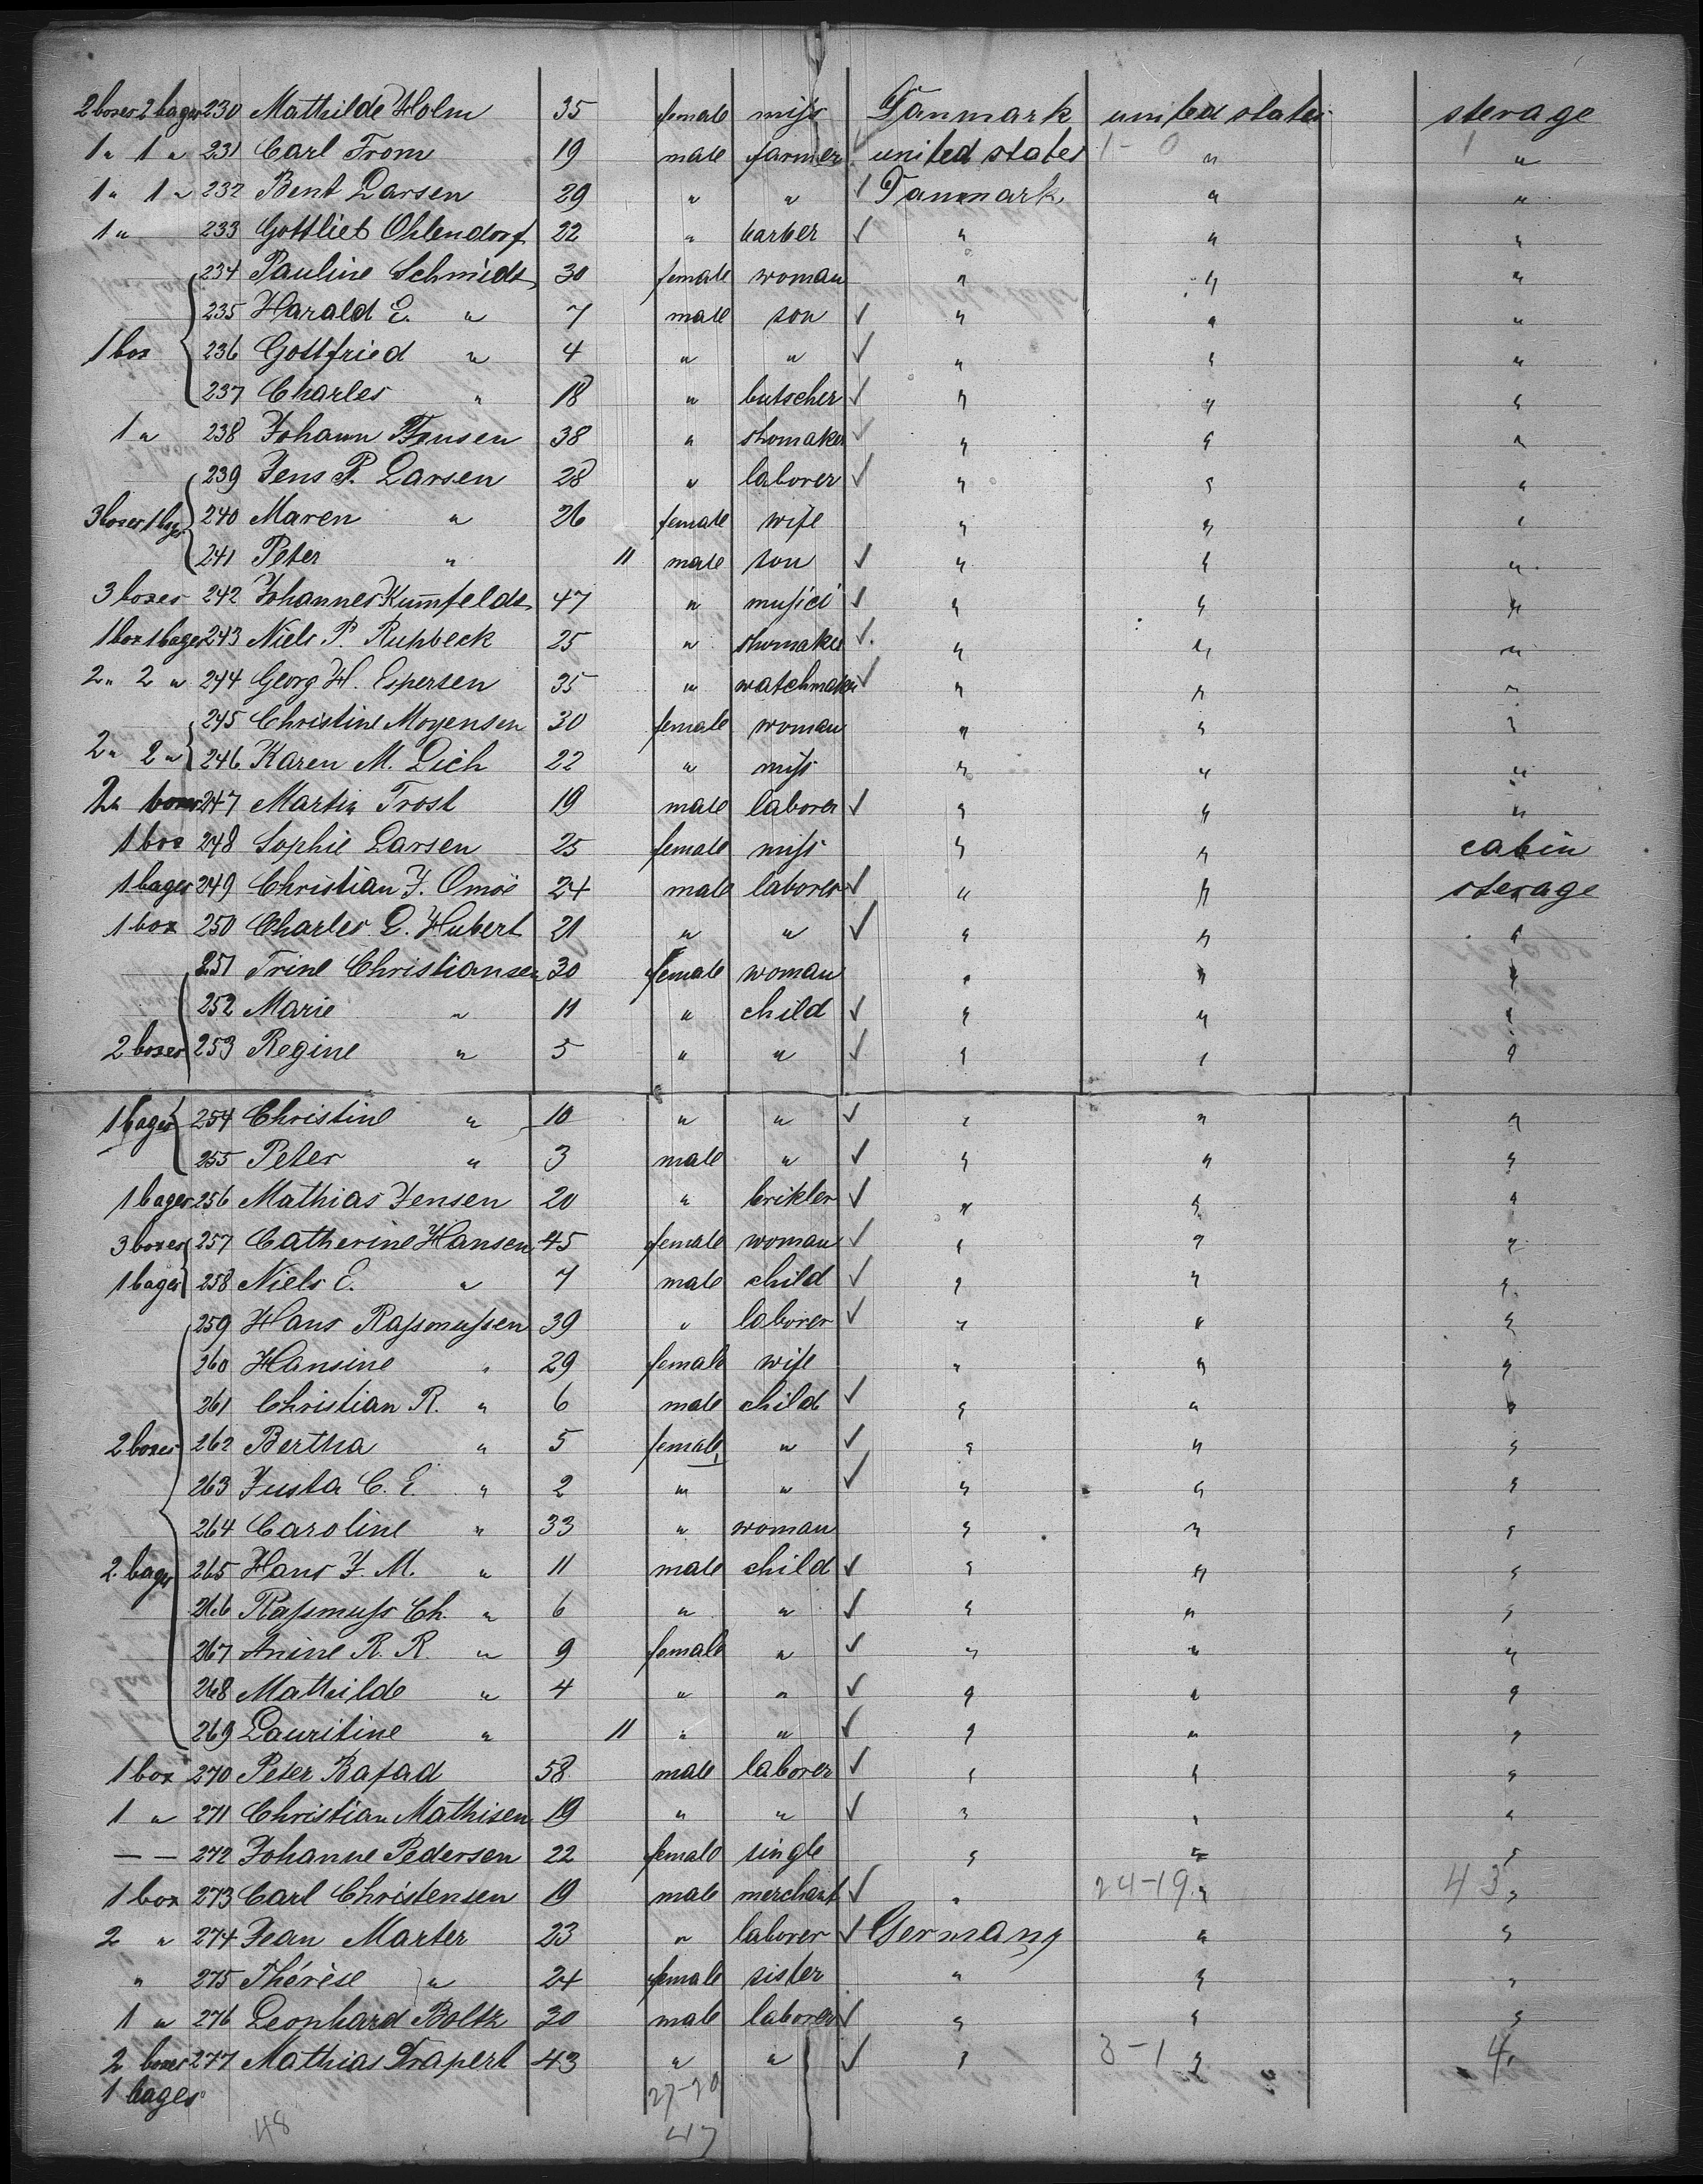 2 boxes 2 bages 230 Mathilde Holm 35 female miſs Danmark united states sterage
1 " 1 " 231 Carl From 19 male farmer ✓ united states 1-0 " 1 "
1 " 1 " 232 Bent Larsen 29 " " ✓ Danmark " "
1 " 233 Gottlieb Ohlendorf 22 " barber ✓ " " "
234 Pauline Schmidt 30 female woman " " "
235 Harald E. " 7 male son ✓ " " "
1 box 236 Gottfried " 4 " " ✓ " " "
237 Charles " 18 " butscher ✓ " " "
1 " 238 Johann 38 " shomaker ✓ " " "
239 Jens P. Larsen 28 " laborer ✓ " " "
3 boxes 1 bag 240 Maren " 26 female wife " " "
241 Peter " 11 male son ✓ " " "
3 boxes 242 Johannes Kum̅feldt 47 " muſici ✓ " " "
1 box 1 bages 243 Niels P. Ruhbeck 25 " shomaker ✓ " " "
2 " 2 " 244 Georg H. Espersen 35 " watchmaker ✓ " " "
245 Christine Moyensen 30 female woman " " "
2 " 2 " 246 Karen M. Lich 22 " miſs " " "
2 boxes 247 Martin Trost 19 male laborer ✓ " " "
1 box 248 Sophie Larsen 25 female miſs " " cabin
1 bages 249 Christian J. Omöe 24 male laborer ✓ " " sterage
1 box 250 Charles L. Hubert 21 " " ✓ " " "
251 Trine Christiansen 30 female woman " " "
252 Marie " 11 " child ✓ " " "
2 boxes 253 Regine " 5 " " ✓ " " "
1 bages 254 Christine " 10 " " ✓ " " "
255 Peter " 3 male " ✓ " " "
1 bages 256 Mathias Jensen 20 " brikler ✓ " " "
3 boxes 257 Catherine Hansen 45 female woman ✓ " " "
1 bages 258 Niels E. " 7 male child ✓ " " "
259 Hans Raſsmuſsen 39 " laborer ✓ " " "
260 Hansine " 29 female wife " " "
261 Christian R. " 6 male child ✓ " " "
2 boxes 262 Bertha " 5 female " ✓ " " "
263 Justa C. E. " 2 " " ✓ " " "
264 Caroline " 33 " woman " " "
2 bages 265 Hans J. M. " 11 male child ✓ " " "
266 Raſsmuſs Ch. " 6 " " ✓ " " "
267 Anine R. R. " 9 female " ✓ " " "
268 Mathilde " 4 " " ✓ " " "
269 Lauritine " 11 " " ✓ " " "
1 box 270 Peter Bafad 58 male laborer ✓ " " "
1 " 271 Christian Mathisen 19 " " ✓ " " "
— — 272 Johanne Pedersen 22 female single " " "
1 box 273 Carl Christensen 19 male merchant ✓ " 24-19 " 43 "
2 " 274 Jean Marter 23 " laborer ✓ Germany " "
" 275 Thérèse " 24 female sister " " "
1 " 276 Leonhard Boltz 30 male laborer ✓ " " "
2 boxes 277 Mathias Trapert 43 " " ✓ " 3-1 " 4 "
1 bages 27-20
48 47